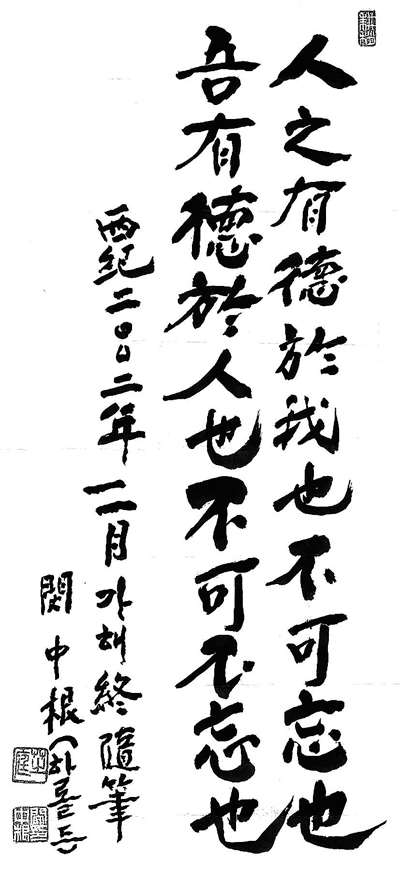 人之有德於我也不可忘也
吾有德於人也不可不忘也
西紀二〇〇二年 一二月 가해 終 隨筆
閔中根